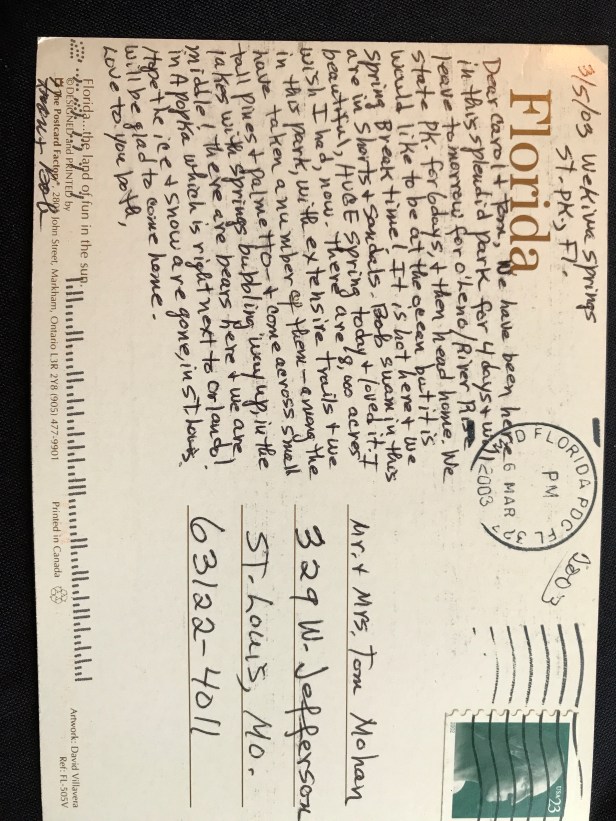 3/5/03 Wekiwa Springs
St. PK, Fl.
Florida
Dear Carol + Tom, We have been here
in this splendid park for 4 days + will
leave tomorrow for O'Leno/River Rise
State PK. for 6 days, + then head home. We
would like to be at the ocean but it is
Spring Break time! It is hot here + we
are in Shorts + Sandals. Bob swam in this
beautiful, HUGE Spring today + loved it. I
wish I had, now. There are 8,000 acres
in this park, with extensive trails + we
have taken a number of them - among the
tall pines + palmetto - + come across small
lakes with springs bubbling way up in the
middle! There are bears here + we are
in Apopka which is right next to Orlando!
Hope the ice + snow are gone, in St. Louis.
Will be glad to come home.
Love to you both,
+ Bob
Florida...the land of fun in the sun.
© DESIGNED and PRINTED by
The Postcard Factory, John Street, Markham, Ontario L3R 2Y8 (905) 477-9901
Printed in Canada
Artwork: David Villavera
Ref: FL-505V
FLORIDA PDC FL
PM
6 MAR
2003
2003
USA 23
Mr. + Mrs. Tom Mohan
329 W. Jefferson
ST. Louis, Mo.
63122-4011